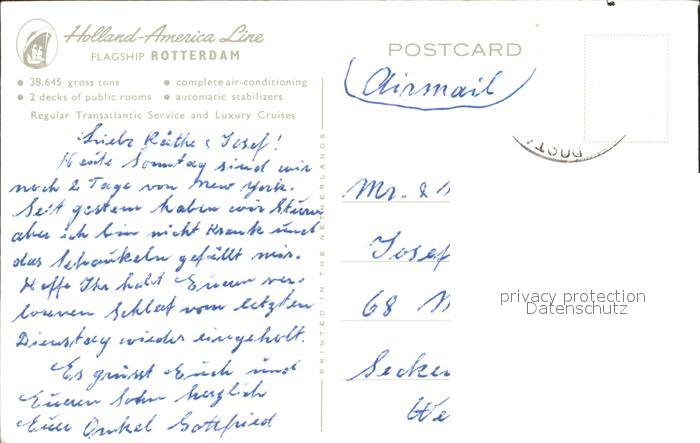 Holland-America Line
FLAGSHIP ROTTERDAM
• 38,645 gross tons • complete air-conditioning
• 2 decks of public rooms • automatic stabilizers
Regular Transatlantic Service and Luxury Cruises
Liebe Käthe & Josef!
Heute Sonntag sind wir
noch 2 Tage von New York.
Seit gestern haben wir Sturm
aber ich bin nicht krank und
das Schaukeln gefällt mir.
Hoffe Ihr habt Eueren ver-
lorenen Schlaf vom letzten
Dienstag wieder eingeholt.
Es grüsst Euch und
Eueren Sohn herzlich
Euer Onkel Gottfried
PRINTED IN THE NETHERLANDS
POSTCARD
Airmail
POST
Mr. &
Josef
68
Secke
We
privacy protection
Datenschutz